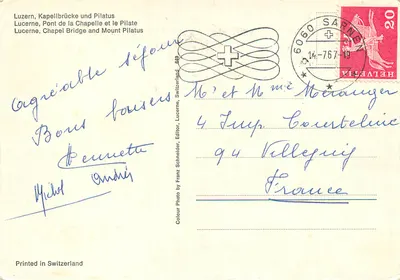 Luzern, Kapellbrücke und Pilatus
Lucerne, Pont de la Chapelle et le Pilate
Lucerne, Chapel Bridge and Mount Pilatus
agréable séjour
Bons baisers
Henriette
Michel André
Printed in Switzerland
Colour Photo by Franz Schneider, Editor, Lucerne, Switzerland
6060 SARNEN
14-7.67-19
30
HELVETIA
Mr et Mme Meranger
4 Imp. Courteline
94 Villejuif
France